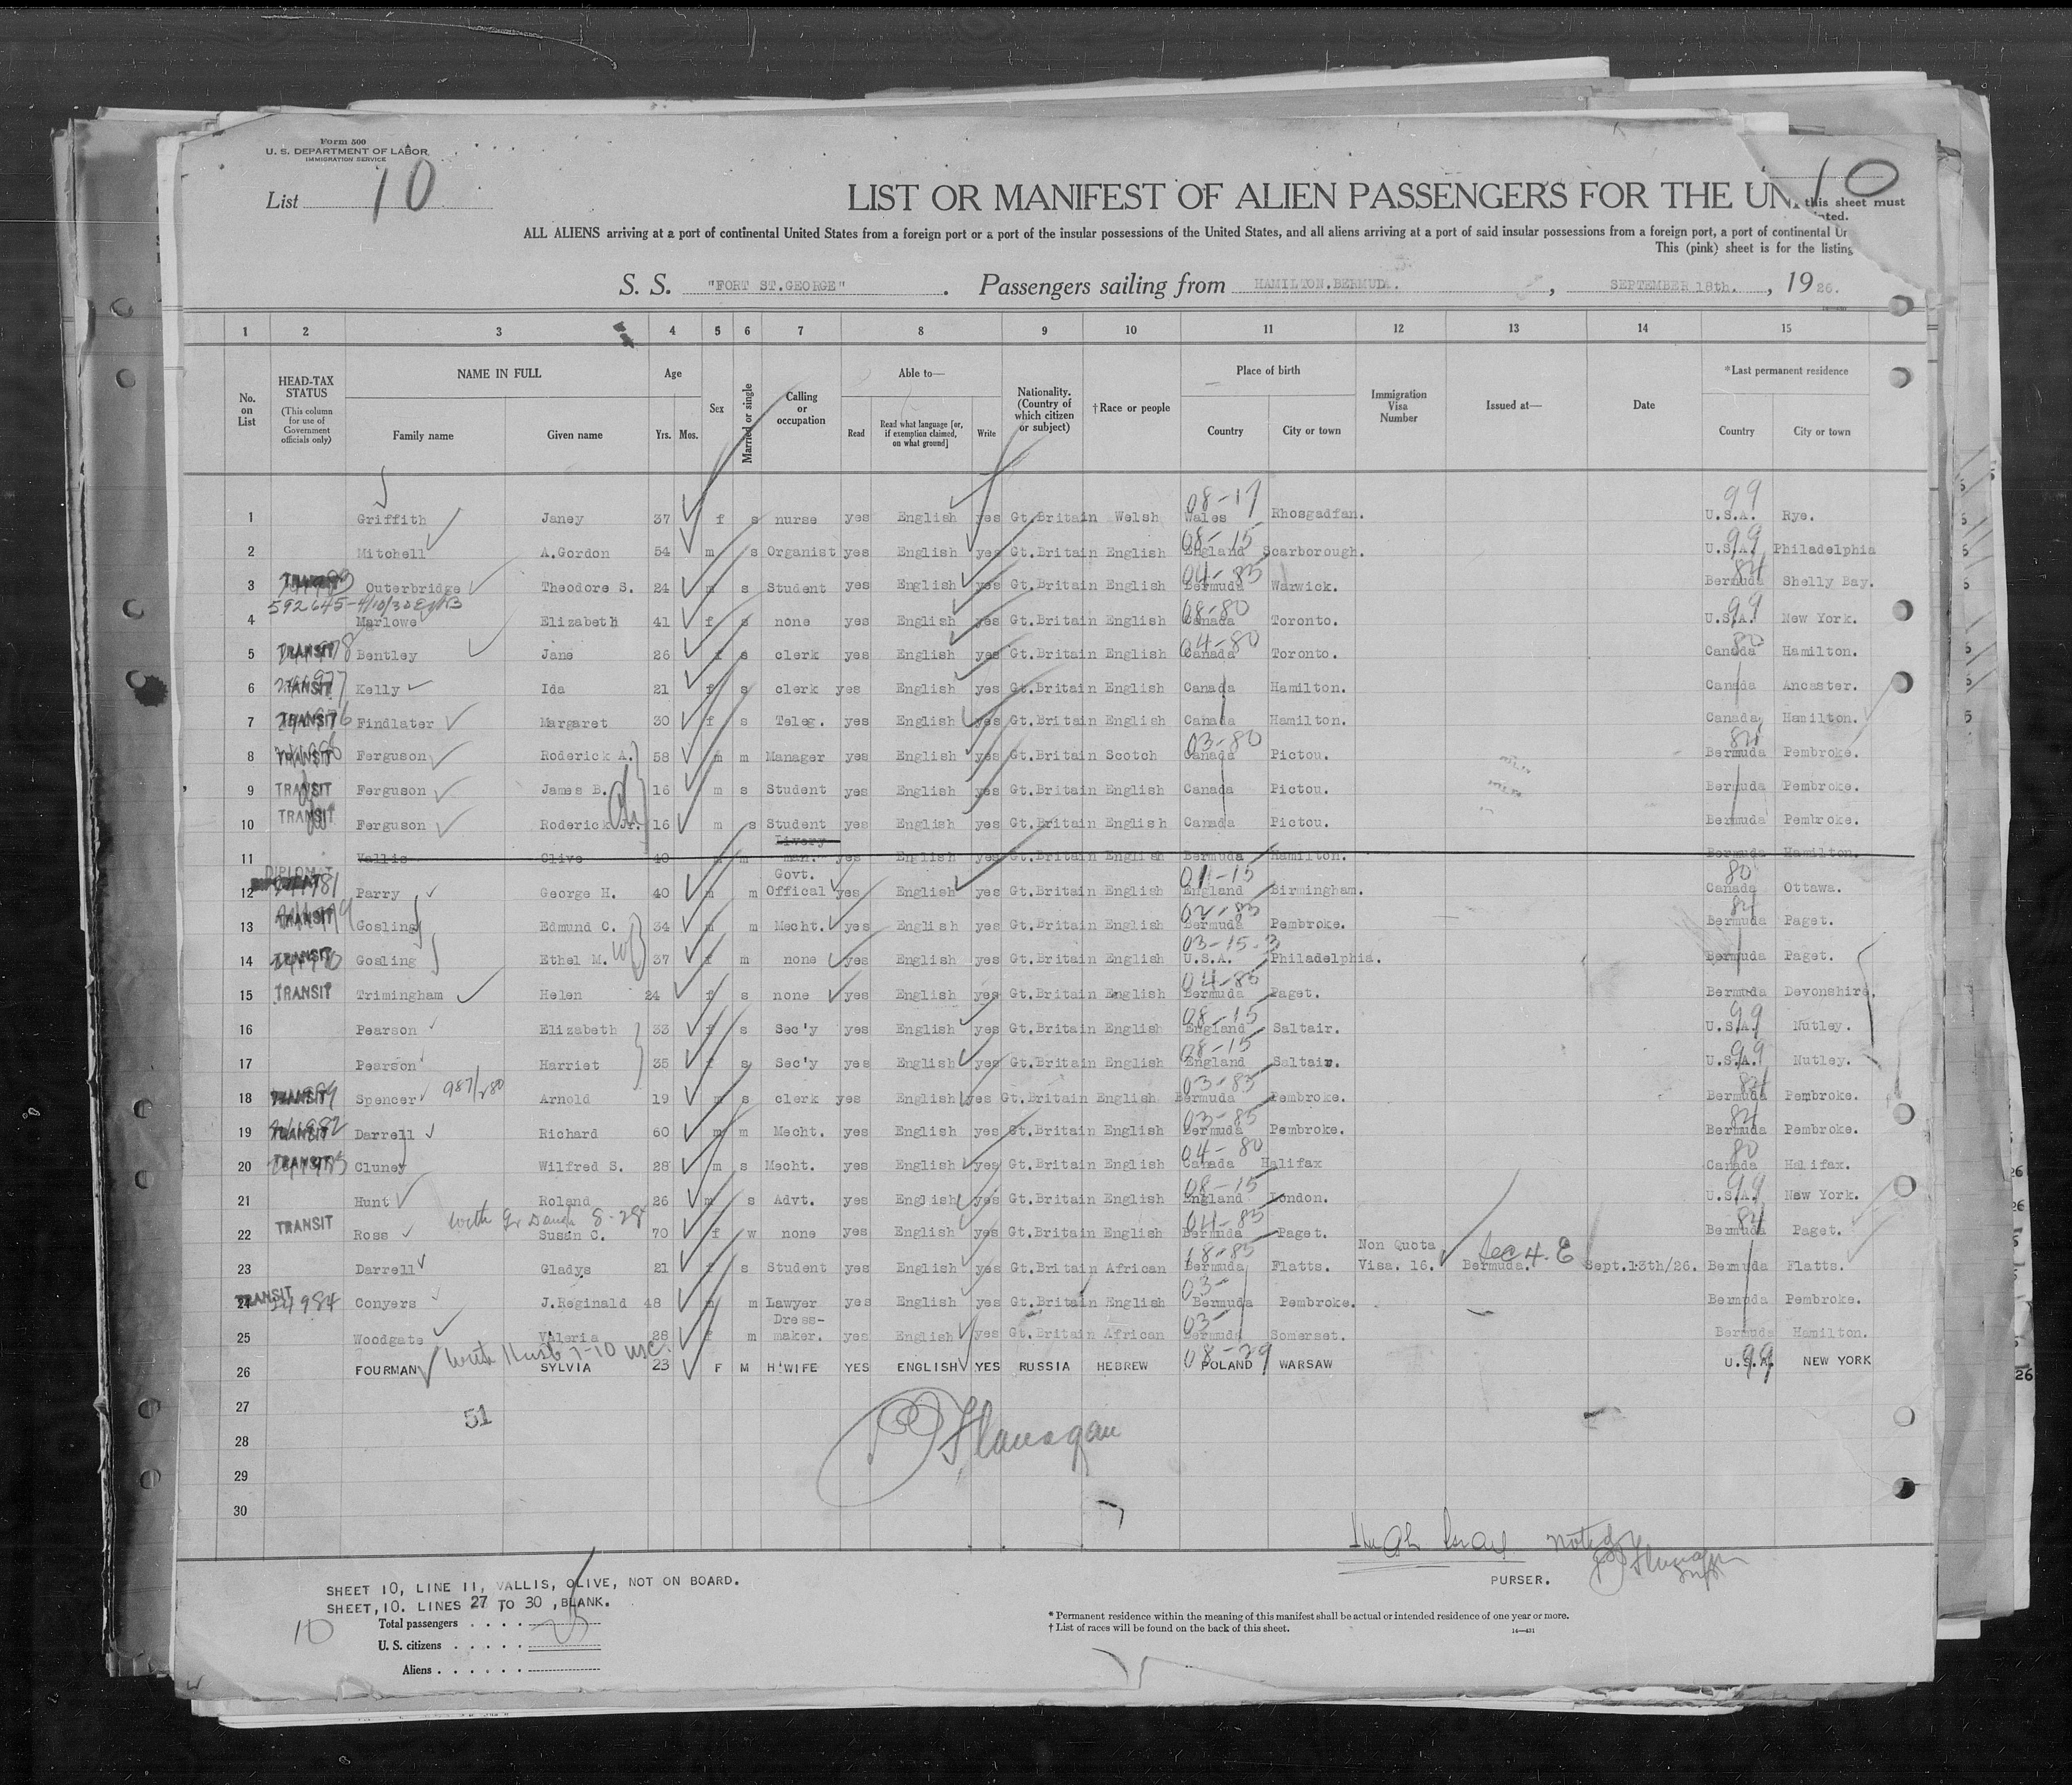 Form 500
U. S. DEPARTMENT OF LABOR
IMMIGRATION SERVICE
List 10
10
LIST OR MANIFEST OF ALIEN PASSENGERS FOR THE UN
this sheet must
ALL ALIENS arriving at a port of continental United States from a foreign port or a port of the insular possessions of the United States, and all aliens arriving at a port of said insular possessions from a foreign port, a port of continental Un
This (pink) sheet is for the listing
S. S. "FORT ST.GEORGE". Passengers sailing from HAMILTON.BERMUDA. , SEPTEMBER 18th. , 1926.
1 2 3 4 5 6 7 8 9 10 11 12 13 14 15
No. on List
HEAD-TAX STATUS (This column for use of Government officials only)
NAME IN FULL
Family name Given name
Age
Yrs. Mos.
Sex
Married or single
Calling or occupation
Able to—
Read
Read what language [or, if exemption claimed, on what ground]
Write
Nationality. (Country of which citizen or subject)
†Race or people
Place of birth
Country City or town
Immigration Visa Number
Issued at—
Date
*Last permanent residence
Country City or town
08-17 99
1 Griffith Janey 37 f s nurse yes English yes Gt.Britain Welsh Wales Rhosgadfan. U.S.A. Rye.
08-15 99
2 Mitchell A.Gordon 54 m s Organist yes English yes Gt.Britain English England Scarborough. U.S.A. Philadelphia
04-85 84
3 Outerbridge Theodore S. 24 m s Student yes English yes Gt.Britain English Bermuda Warwick. Bermuda Shelly Bay.
592645-4/10/30
08-80 99
4 Marlowe Elizabeth 41 f s none yes English yes Gt.Britain English Canada Toronto. U.S.A. New York.
04-80 80
5 TRANSIT Bentley Jane 26 f s clerk yes English yes Gt.Britain English Canada Toronto. Canada Hamilton.
6 TRANSIT Kelly Ida 21 f s clerk yes English yes Gt.Britain English Canada Hamilton. Canada Ancaster.
7 TRANSIT Findlater Margaret 30 f s Teleg. yes English yes Gt.Britain English Canada Hamilton. Canada Hamilton.
03-80 84
8 TRANSIT Ferguson Roderick A. 58 m m Manager yes English yes Gt.Britain Scotch Canada Pictou. Bermuda Pembroke.
9 TRANSIT Ferguson James B. 16 m s Student yes English yes Gt.Britain English Canada Pictou. Bermuda Pembroke.
10 TRANSIT Ferguson Roderick Jr. 16 m s Student yes English yes Gt.Britain English Canada Pictou. Bermuda Pembroke.
Livery
11 Vallis Olive 40 m m man. yes English yes Gt.Britain English Bermuda Hamilton. Bermuda Hamilton.
DIPLOMAT Govt. 01-15 80
12 Parry George H. 40 m m Offical yes English yes Gt.Britain English England Birmingham. Canada Ottawa.
02-83 84
13 TRANSIT Gosling Edmund C. 34 m m Mecht. yes English yes Gt.Britain English Bermuda Pembroke. Bermuda Paget.
03-15-3
14 TRANSIT Gosling Ethel M. 37 f m none yes English yes Gt.Britain English U.S.A. Philadelphia. Bermuda Paget.
04-85
15 TRANSIT Trimingham Helen 24 f s none yes English yes Gt.Britain English Bermuda Paget. Bermuda Devonshire.
08-15 99
16 Pearson Elizabeth 33 f s Sec'y yes English yes Gt.Britain English England Saltair. U.S.A. Nutley.
08-15 99
17 Pearson Harriet 35 f s Sec'y yes English yes Gt.Britain English England Saltair. U.S.A. Nutley.
987/280 03-85 84
18 TRANSIT Spencer Arnold 19 m s clerk yes English yes Gt.Britain English Bermuda Pembroke. Bermuda Pembroke.
03-85 84
19 TRANSIT Darrell Richard 60 m m Mecht. yes English yes Gt.Britain English Bermuda Pembroke. Bermuda Pembroke.
04-80 80
20 TRANSIT Cluney Wilfred S. 28 m s Mecht. yes English yes Gt.Britain English Canada Halifax Canada Halifax.
08-15 99
21 Hunt Roland 26 m s Advt. yes English yes Gt.Britain English England London. U.S.A. New York.
with Gr Daugh 8-28 04-85 84
22 TRANSIT Ross Susan C. 70 f w none yes English yes Gt.Britain English Bermuda Paget. Bermuda Paget.
18-85 Non Quota Sec 4. E
23 Darrell Gladys 21 f s Student yes English yes Gt.Britain African Bermuda Flatts. Visa. 16. Bermuda. Sept.13th/26. Bermuda Flatts.
03-
24 TRANSIT Conyers J.Reginald 48 m m Lawyer yes English yes Gt.Britain English Bermuda Pembroke. Bermuda Pembroke.
Dress- 03-
25 Woodgate Valeria 28 f m maker. yes English yes Gt.Britain African Bermuda Somerset. Bermuda Hamilton.
with Husb 7-10 08-29 99
26 FOURMAN SYLVIA 23 F M H'WIFE YES ENGLISH YES RUSSIA HEBREW POLAND WARSAW U.S.A. NEW YORK
27
51
28
Flanagan
29
30
Noted by
PURSER.
SHEET 10, LINE 11, VALLIS, OLIVE, NOT ON BOARD.
SHEET,10. LINES 27 TO 30 ,BLANK.
10
Total passengers . . . . 25
U. S. citizens . . . . .
Aliens . . . . . .
* Permanent residence within the meaning of this manifest shall be actual or intended residence of one year or more.
† List of races will be found on the back of this sheet.
14—431